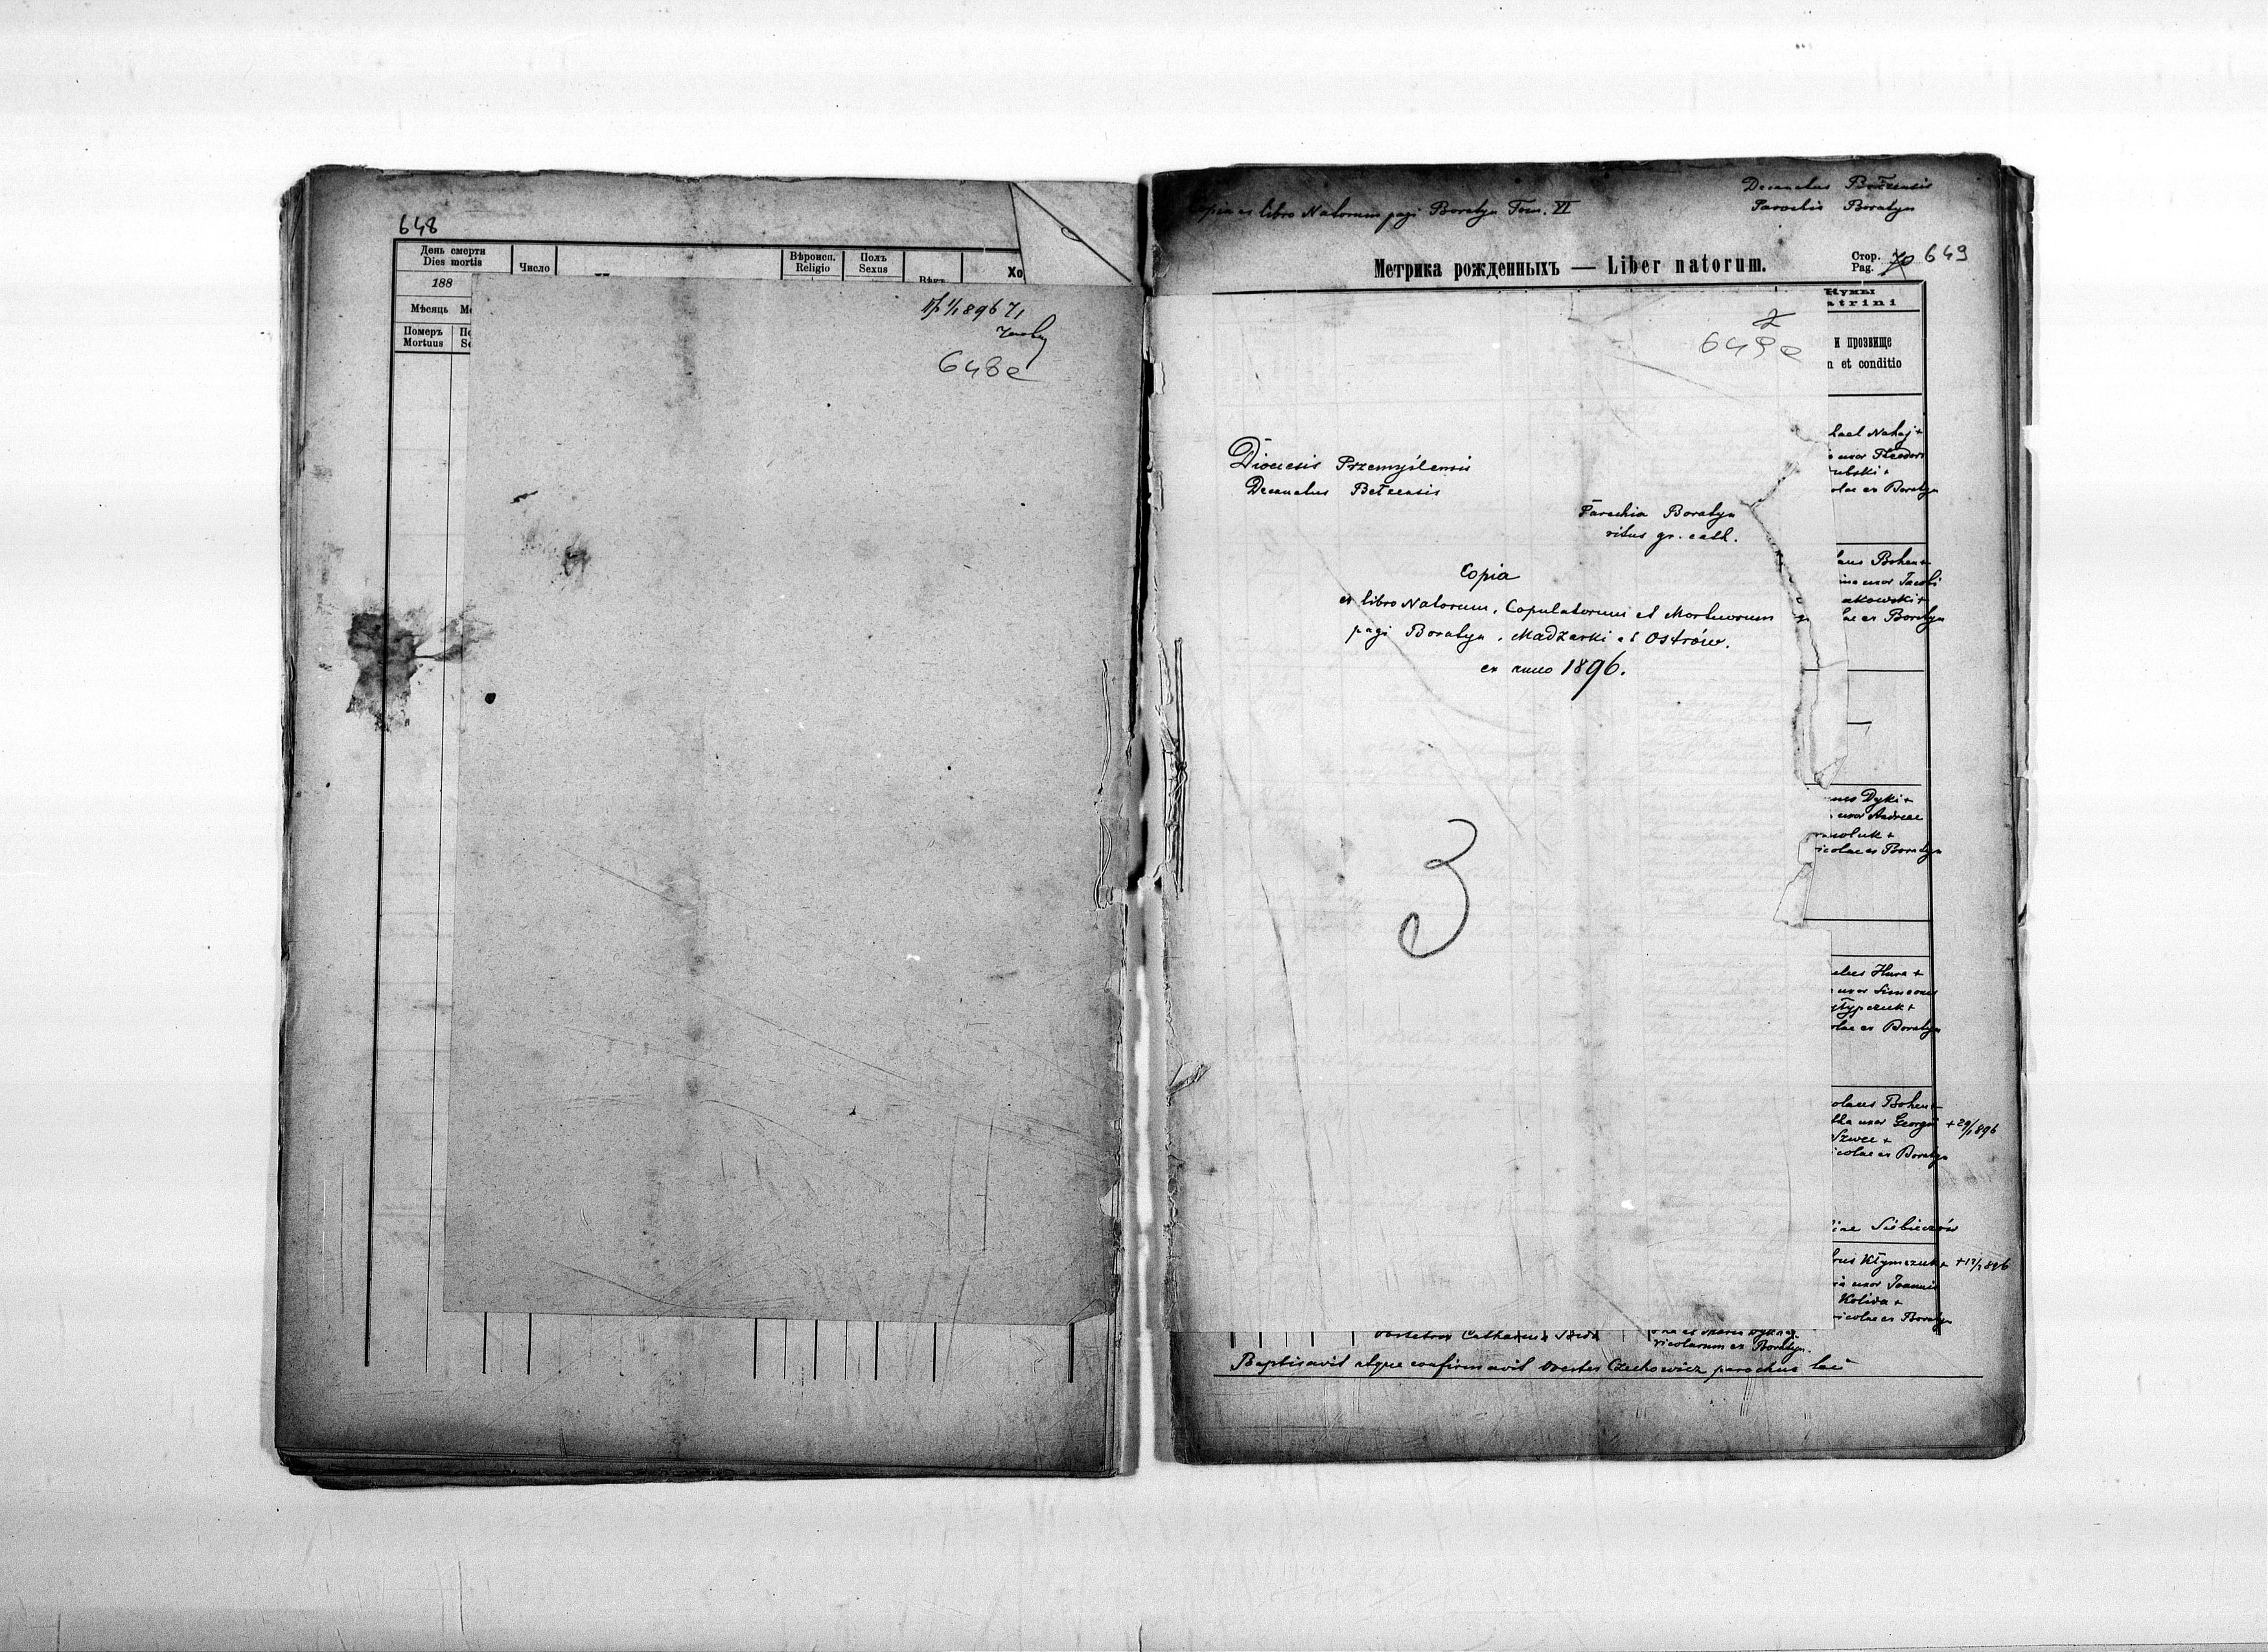 648
День смерти
Dies mortis
188
Мѣсяць
Померъ
Mortuus
Число
Вѣроисп.
Religio
Полъ
Sexus
Хо
648e
Copia ex libro Natorum pagi Boratyn Tom. VI
Decanatus Bełzensis
Parochia Boratyn
Метрика рожденныхъ — Liber natorum.
Стор.
Pag. 70 649
Кумы
atrini
и прозвище
n et conditio
649e
Dioecesis Przemyślensis
Decanatus Bełzensis
Parochia Boratyn
ritus gr. cath.
Copia
ex libro Natorum, Copulatorum et Mortuorum
pagi Boratyn, Madzarki et Ostrów.
ex anno 1896.
3
hael Nahaj +
uxor Theodori
ubski +
olae ex Boratyn
aus Bohen +
uxor Jacobi
akowski +
ae ex Boratyn
nes Dyki +
uxor Andreae
icolae ex Boratyn
Hura +
uxor Simeonis
olae ex Boratyn
olaus Bohen +
uxor Georgii + 29/1 896
Szwec +
icolae ex Boratyn
Kłymczuk +
uxor Joannis
Kolida +
ricolae ex Boratyn
obstetrix Catharina
ricolarum ex Boratyn.
Baptisavit atque confirmavit Orestes Czechowicz parochus loci